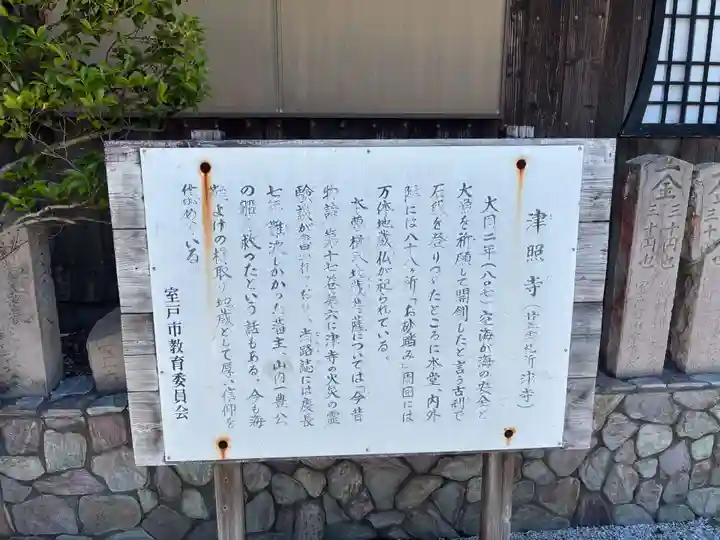 津照寺
大同二年(八〇七)空海が海の安全と
大漁を祈願して開創したと言う古刹で
石段を登りつめたところに本堂、内外
陣には八十八ヶ所「お砂踏み」周囲には
万体地蔵仏が祀られている。
本尊楫取地蔵菩薩については「今昔
物語」第十七巻第六に津寺の火災の霊
験談が書かれており、当路誌には慶長
七年難波しかかった藩主、山内一豊公
の船を救ったという話もある。今も海
難よけの楫取り地蔵として厚い信仰を
集めている
室戸市教育委員会
金三十円也
三十円也